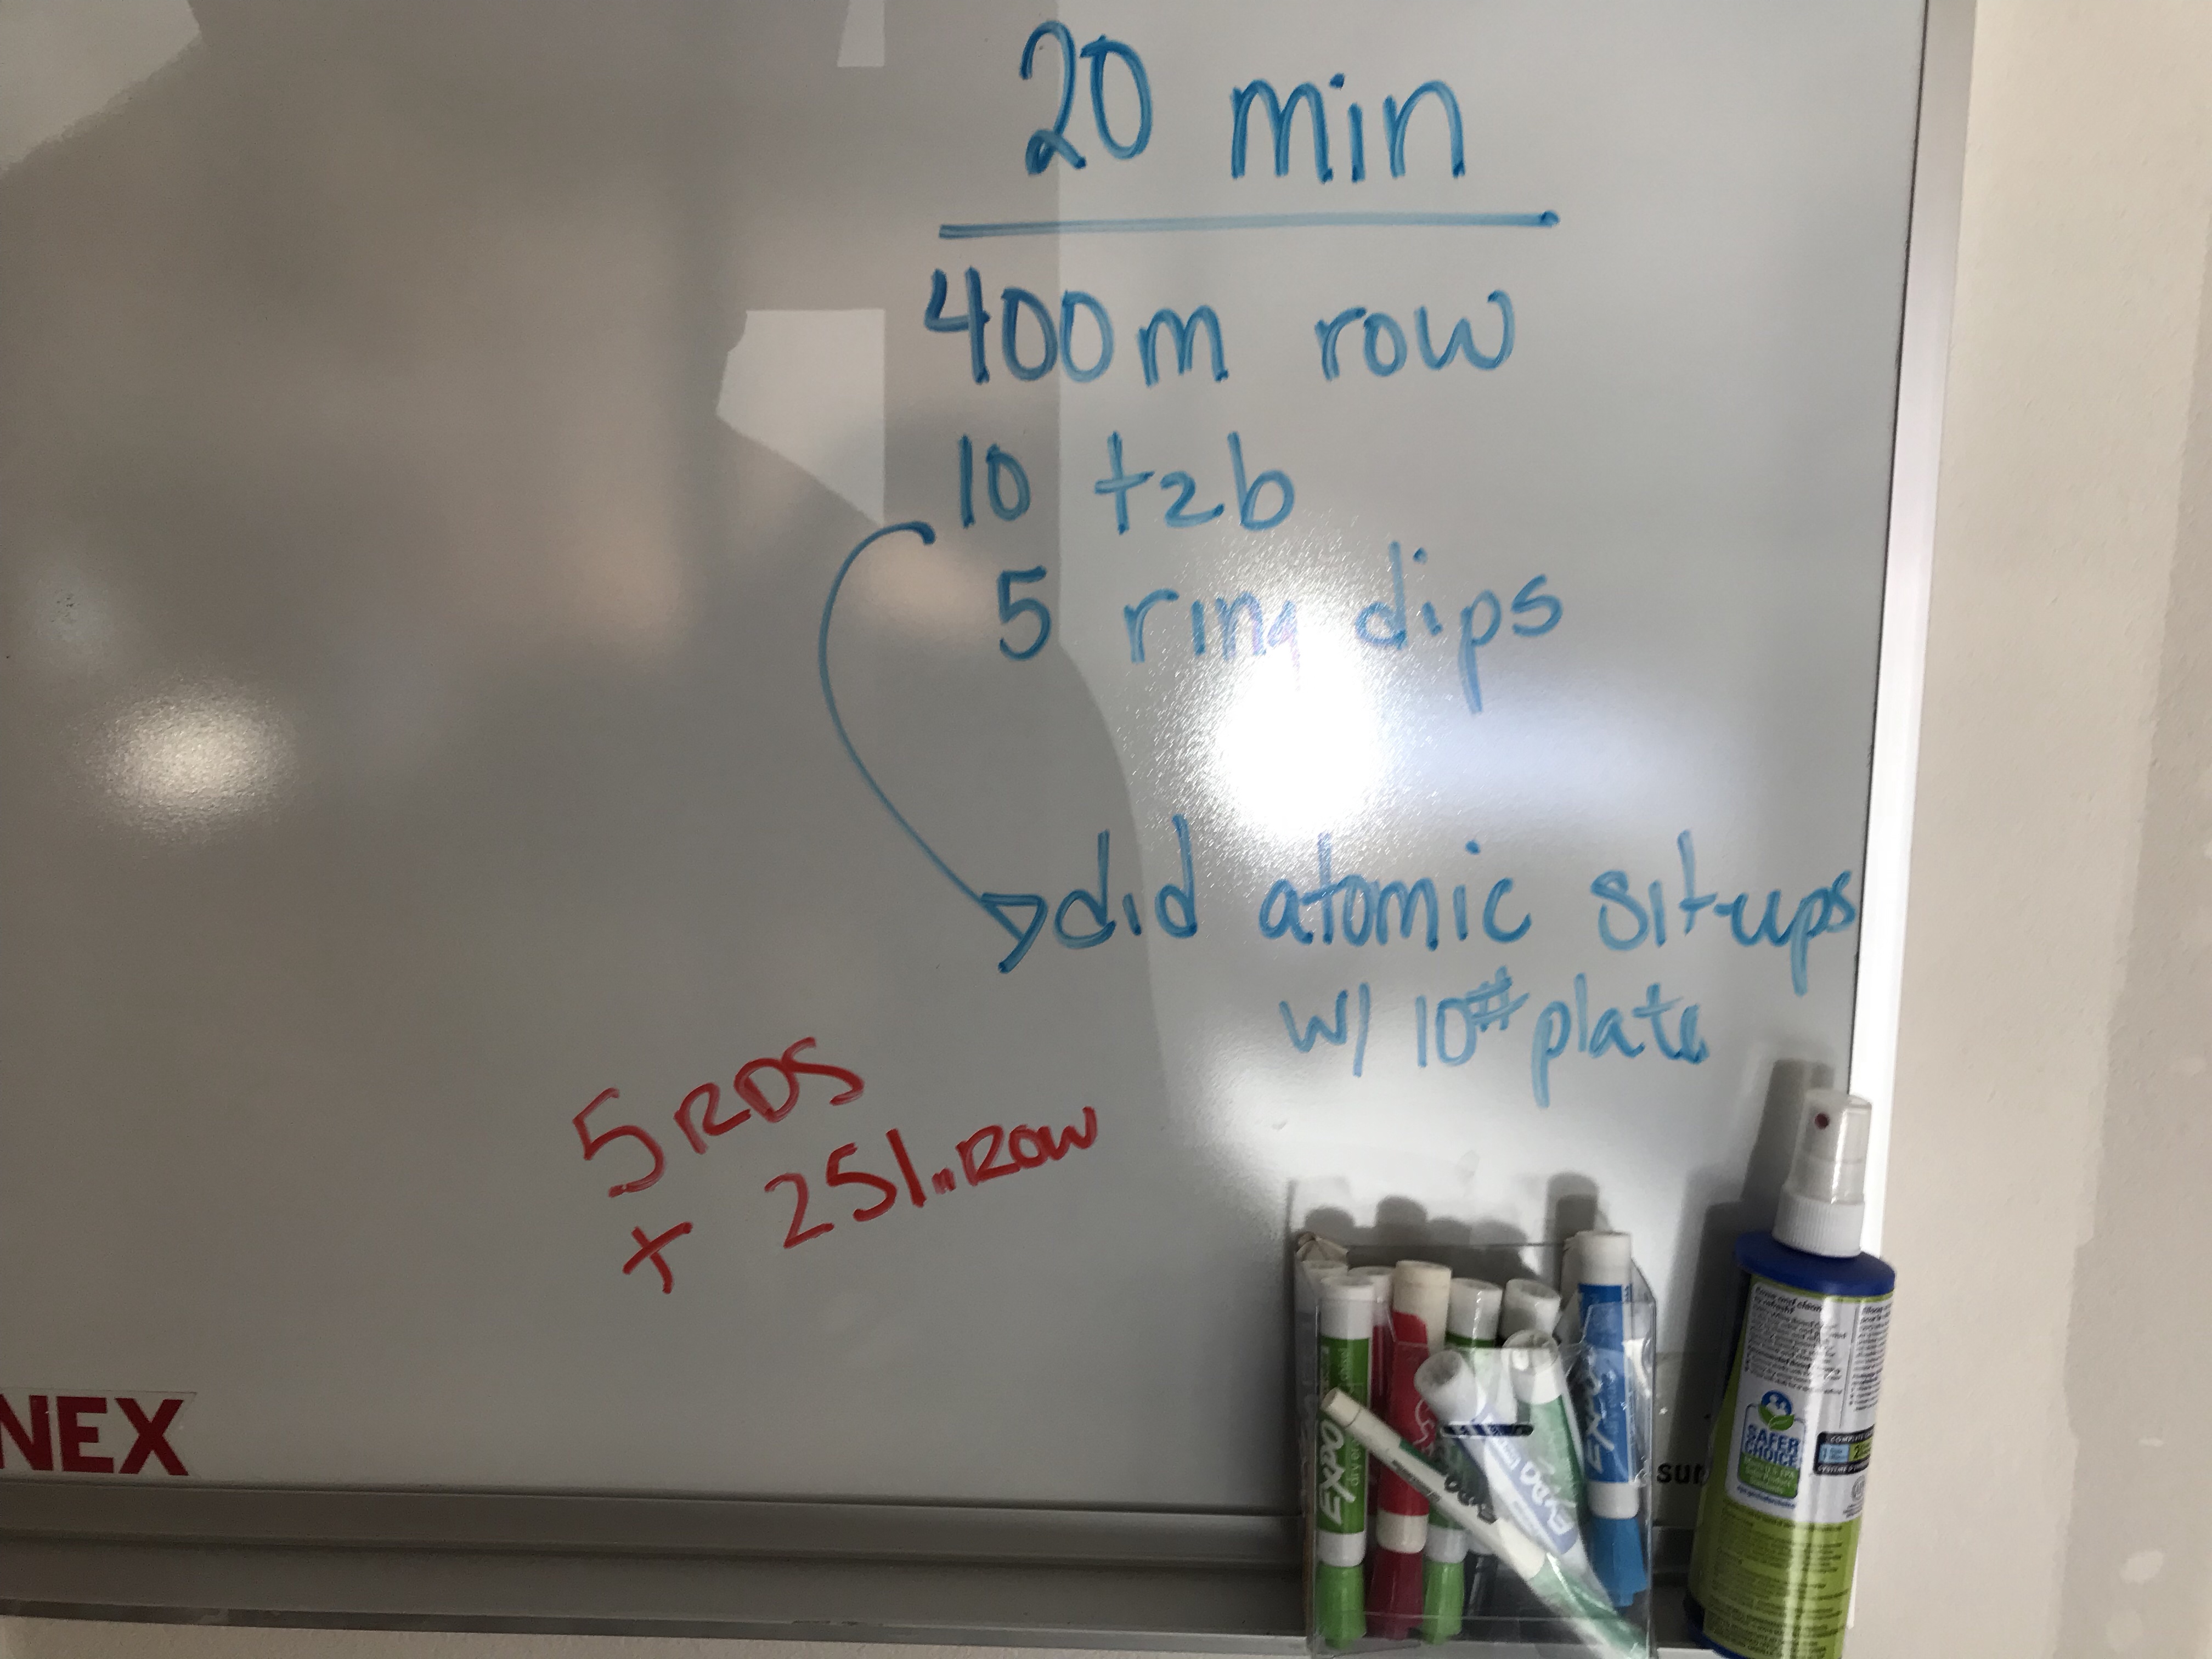 20 min
400m row
10 t2b
5 ring dips
did atomic sit-ups
w/ 10# plate
5 RDS
+ 251m ROW
NEX
EXPO
EXPO
EXPO
EXPO
SAFER
CHOICE